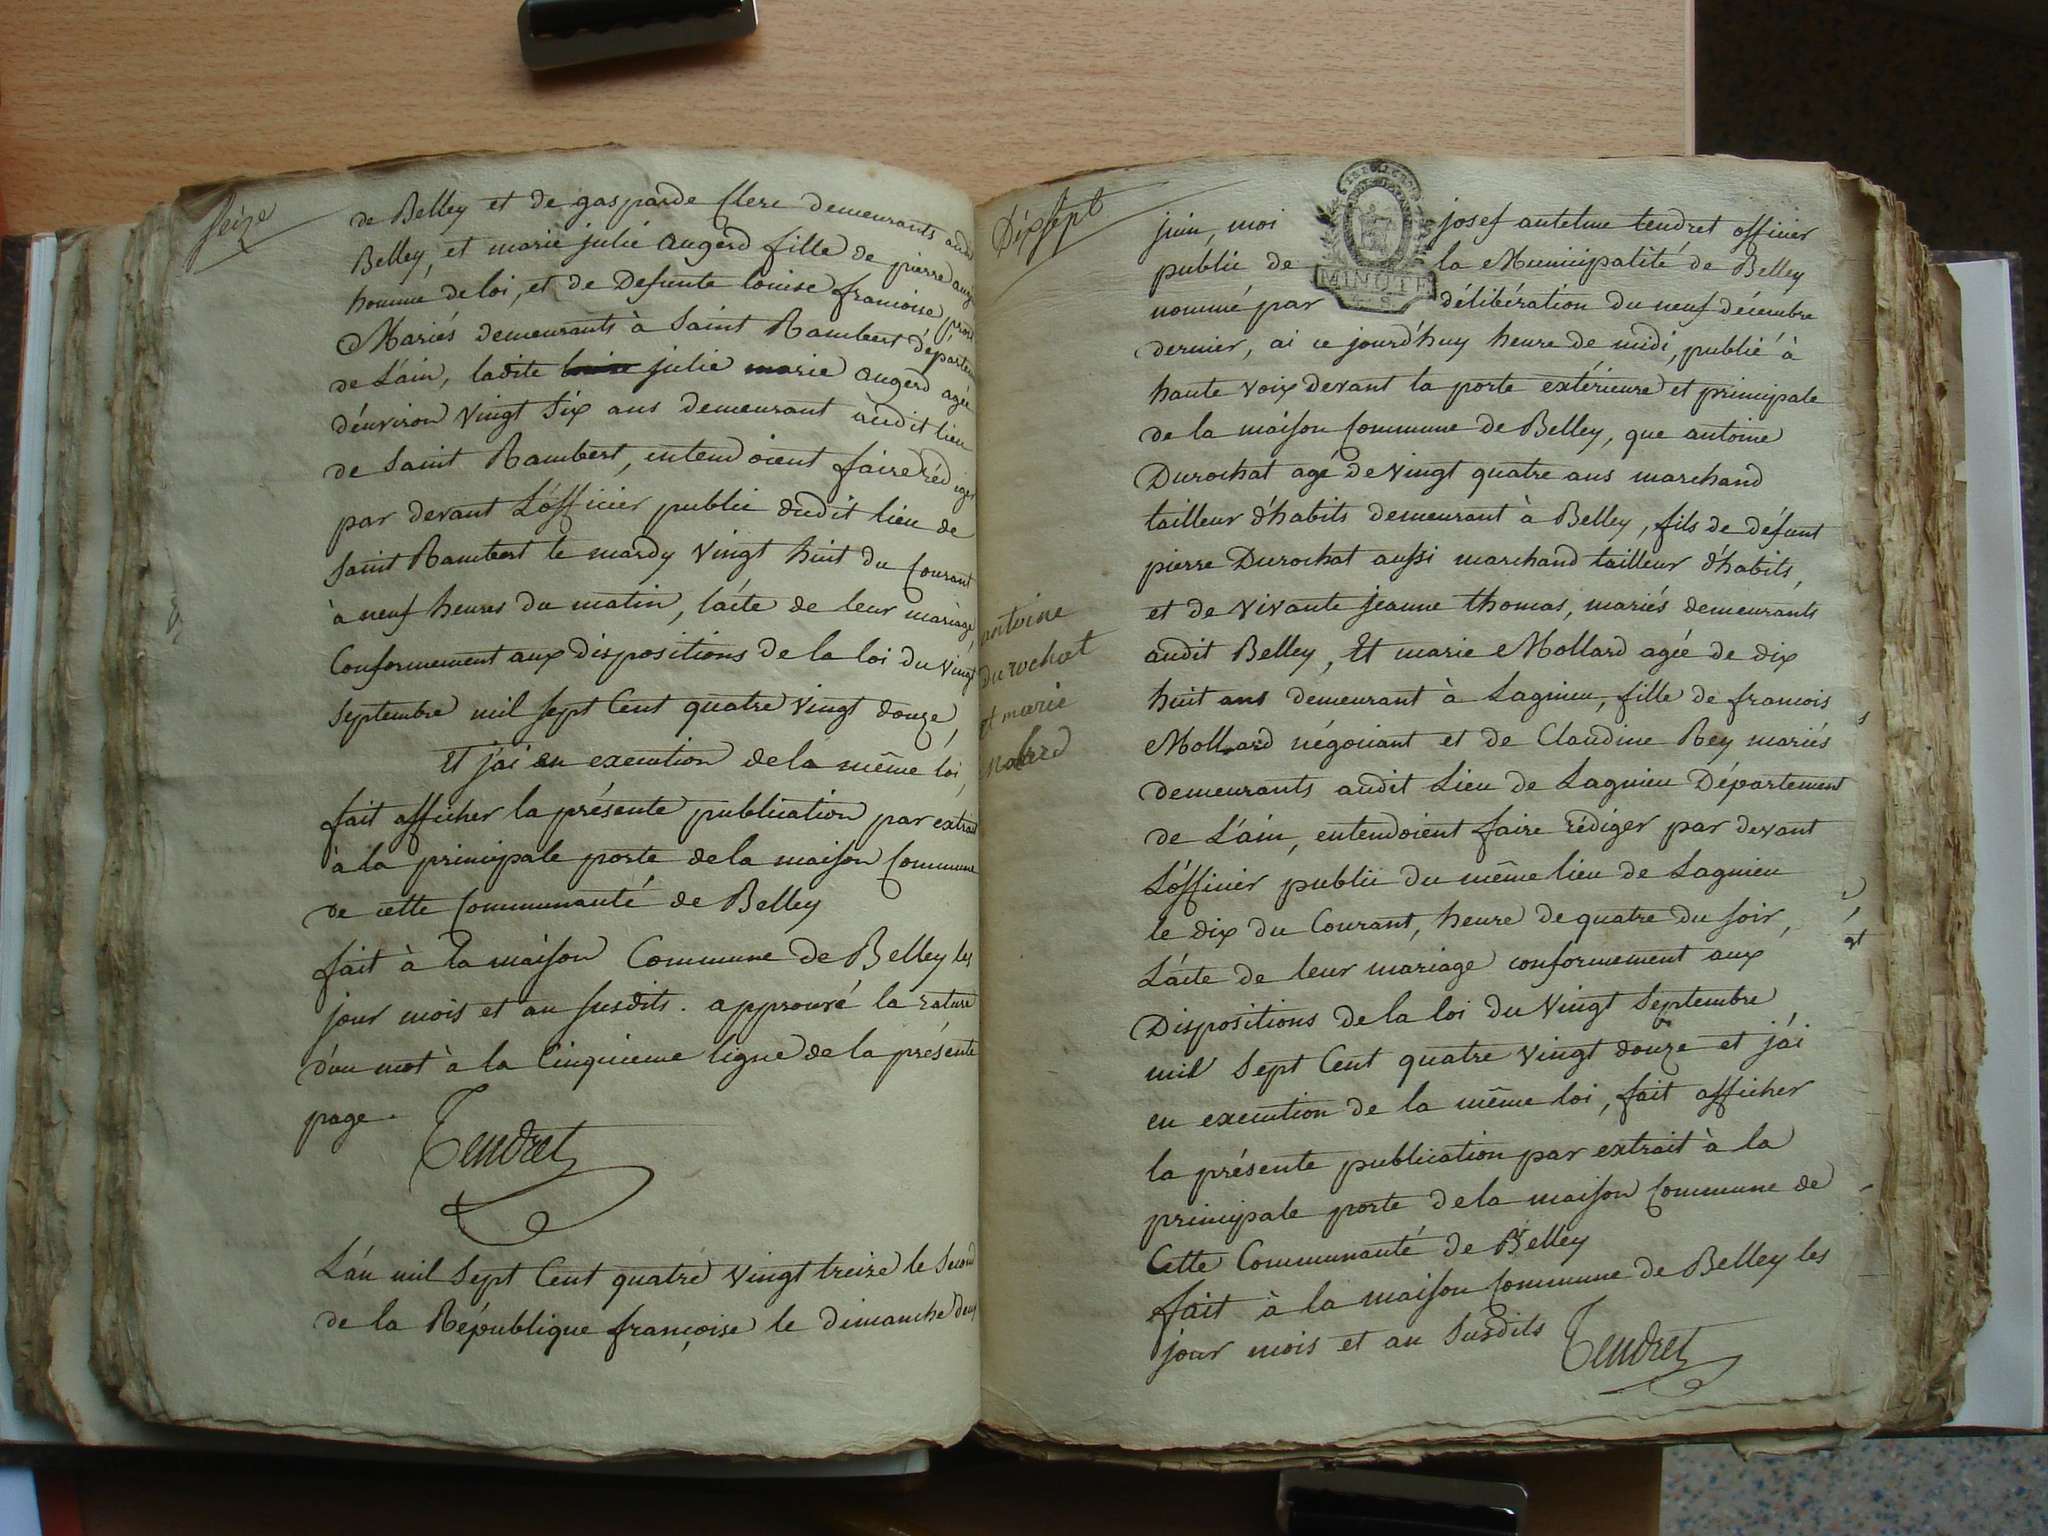 Seize
de Belley et de gasparde Clerc demeurants audit
Belley, et marie julie Augerd fille de pierre aug
homme de loi, et de Defunte louise francoise
Mariés demeurants à Saint Rambert départem
de L'ain, ladite louise julie marie augerd agée
d'environ vingt six ans demeurant audit lieu
de Saint Rambert, entendoient faire rédiger
par devant L'officier public dudit lieu de
Saint Rambert le mardy vingt huit du Courant
à neuf heures du matin, l'acte de leur mariage,
Conformement aux dispositions de la loi du vingt
Septembre mil sept Cent quatre vingt douze,
Et j'ai en execution de la même loi
fait afficher la présente publication par extrait
à la principale porte de la maison Commune
de cette Communauté de Belley
fait à la maison Commune de Belley les
jour mois et an susdits. approuvé la rature
d'un mot à la Cinquieme ligne de la présente
page.
Tendret
L'an mil Sept Cent quatre vingt treize le Second
de la République françoise le dimanche deux
Dix Sept
antoine
durochat
et marie
Molard
juin, moi josef antelme tendret officier
public de la Municipalité de Belley
nommé par délibération du neuf décembre
MINUTE
dernier, ai ce jourd'huy heure de midi, publié à
haute voix devant la porte extérieure et principale
de la maison Commune de Belley, que antoine
Durochat agé de vingt quatre ans marchand
tailleur d'habits demeurant à Belley, fils de défunt
pierre Durochat aussi marchand tailleur d'habits,
et de vivante jeanne thomas, mariés demeurants
audit Belley, Et marie Mollard agée de dix
huit ans demeurant à Lagnieu, fille de francois
Mollard négociant et de Claudine Rey mariés
demeurants audit Lieu de Lagnieu Département
de L'ain, entendoient faire rédiger par devant
L'officier public du même lieu de Lagnieu
le dix du Courant, heure de quatre du soir,
L'acte de leur mariage conformement aux
Dispositions de la loi du vingt Septembre
mil Sept Cent quatre vingt douze et j'ai
en execution de la même loi, fait afficher
la présente publication par extrait à la
principale porte de la maison Commune de
Cette Communauté de Belley
fait à la maison Commune de Belley les
jour mois et an Susdits Tendret